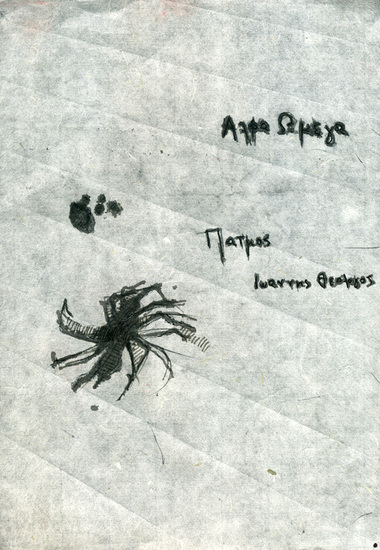 Αλφα Ωμεγα
Πατμος
Ιωαννης Θεολογος